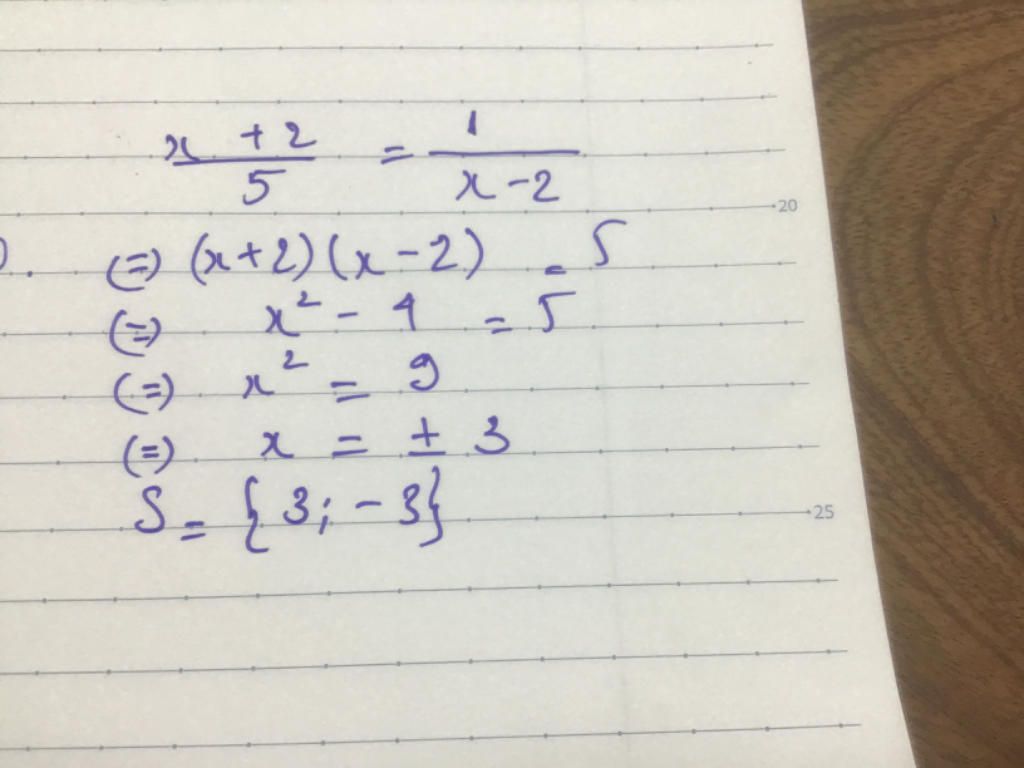 x + 2 / 5 = 1 / x - 2
(=) (x + 2) (x - 2) = 5
20
(=) x² - 4 = 5
(=) x² = 9
(=) x = ± 3
S = {3; -3}
25